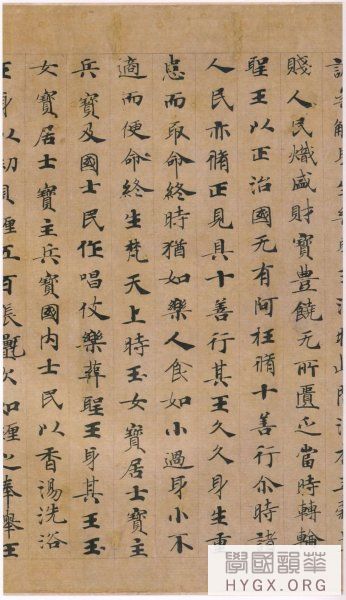 賤人民熾盛財寶豐饒无所匱乏當時轉輪
聖王以正治國无有阿枉脩十善行尒時諸
人民亦脩正見具十善行其王久久身生重
患而取命終時猶如樂人食如小過身小不
適而便命終生梵天上時玉女寶居士寶主
兵寶及國士民作唱伎樂葬聖王身其王玉
女寶居士寶主兵寶國内士民以香湯洗浴
王身以劫貝纏五百張氎次如纏之奉舉王
學國韻華
HYGX.ORG